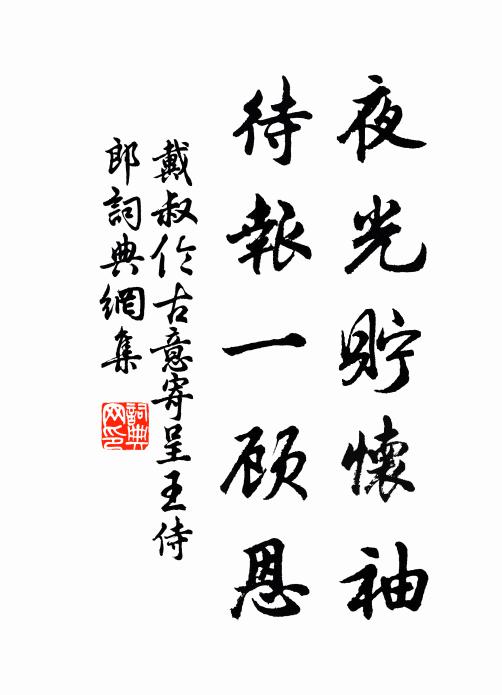 夜光貯懷袖
待報一顾恩
戴叔伦古意寄呈王侍
郎詞典網集
詞典
网印